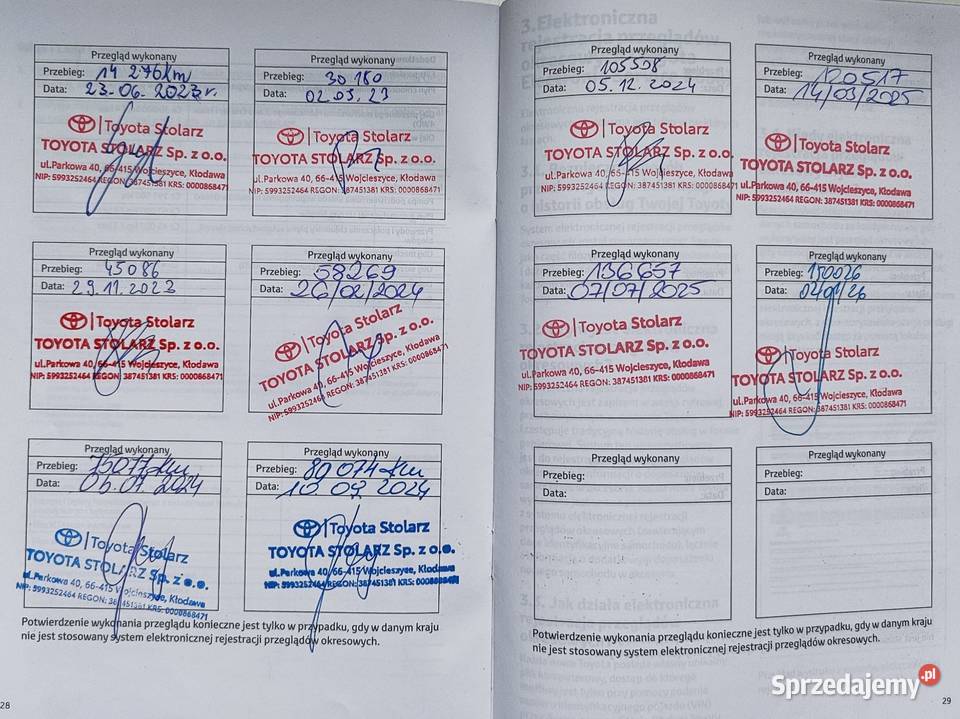 Przegląd wykonany
Przebieg: 14 276km
Data: 23.06.2023r.
Toyota Stolarz
TOYOTA STOLARZ Sp. z o.o.
ul.Parkowa 40, 66-415 Wojcieszyce, Kłodawa
NIP: 5993252464 REGON: 387451381 KRS: 0000868471
Przegląd wykonany
Przebieg: 30180
Data: 02.03.23
Toyota Stolarz
TOYOTA STOLARZ Sp. z o.o.
ul.Parkowa 40, 66-415 Wojcieszyce, Kłodawa
NIP: 5993252464 REGON: 387451381 KRS: 0000868471
Przegląd wykonany
Przebieg: 45086
Data: 29.11.2023
Toyota Stolarz
TOYOTA STOLARZ Sp. z o.o.
ul.Parkowa 40, 66-415 Wojcieszyce, Kłodawa
NIP: 5993252464 REGON: 387451381 KRS: 0000868471
Przegląd wykonany
Przebieg: 58269
Data: 26/02/2024
Toyota Stolarz
TOYOTA STOLARZ Sp. z o.o.
ul.Parkowa 40, 66-415 Wojcieszyce, Kłodawa
NIP: 5993252464 REGON: 387451381 KRS: 0000868471
Przegląd wykonany
Przebieg: 75077km
Data: 2024
Toyota Stolarz
TOYOTA STOLARZ Sp. z o.o.
ul.Parkowa 40, 66-415 Wojcieszyce, Kłodawa
NIP: 5993252464 REGON: 387451381 KRS: 0000868471
Przegląd wykonany
Przebieg: 89074km
Data: 10.09.2024
Toyota Stolarz
TOYOTA STOLARZ Sp. z o.o.
ul.Parkowa 40, 66-415 Wojcieszyce, Kłodawa
NIP: 5993252464 REGON: 387451381 KRS:
Potwierdzenie wykonania przeglądu konieczne jest tylko w przypadku, gdy w danym kraju
nie jest stosowany system elektronicznej rejestracji przeglądów okresowych.
28
Przegląd wykonany
Przebieg: 105598
Data: 05.12.2024
Toyota Stolarz
TOYOTA STOLARZ Sp. z o.o.
ul.Parkowa 40, 66-415 Wojcieszyce, Kłodawa
NIP: 5993252464 REGON: 387451381 KRS: 0000868471
Przegląd wykonany
Przebieg: 120517
Data: 14/03/2025
Toyota Stolarz
TOYOTA STOLARZ Sp. z o.o.
ul.Parkowa 40, 66-415 Wojcieszyce, Kłodawa
NIP: 5993252464 REGON: 387451381 KRS: 0000868471
Przegląd wykonany
Przebieg: 136657
Data: 07/07/2025
Toyota Stolarz
TOYOTA STOLARZ Sp. z o.o.
ul.Parkowa 40, 66-415 Wojcieszyce, Kłodawa
NIP: 5993252464 REGON: 387451381 KRS: 0000868471
Przegląd wykonany
Przebieg: 150026
Data:
Toyota Stolarz
TOYOTA STOLARZ Sp. z o.o.
ul.Parkowa 40, 66-415 Wojcieszyce, Kłodawa
NIP: 5993252464 REGON: 387451381 KRS: 0000868471
Przegląd wykonany
Przebieg:
Data:
Przegląd wykonany
Przebieg:
Data:
Potwierdzenie wykonania przeglądu konieczne jest tylko w przypadku, gdy w danym kraju
nie jest stosowany system elektronicznej rejestracji przeglądów okresowych.
29
Sprzedajemy.pl